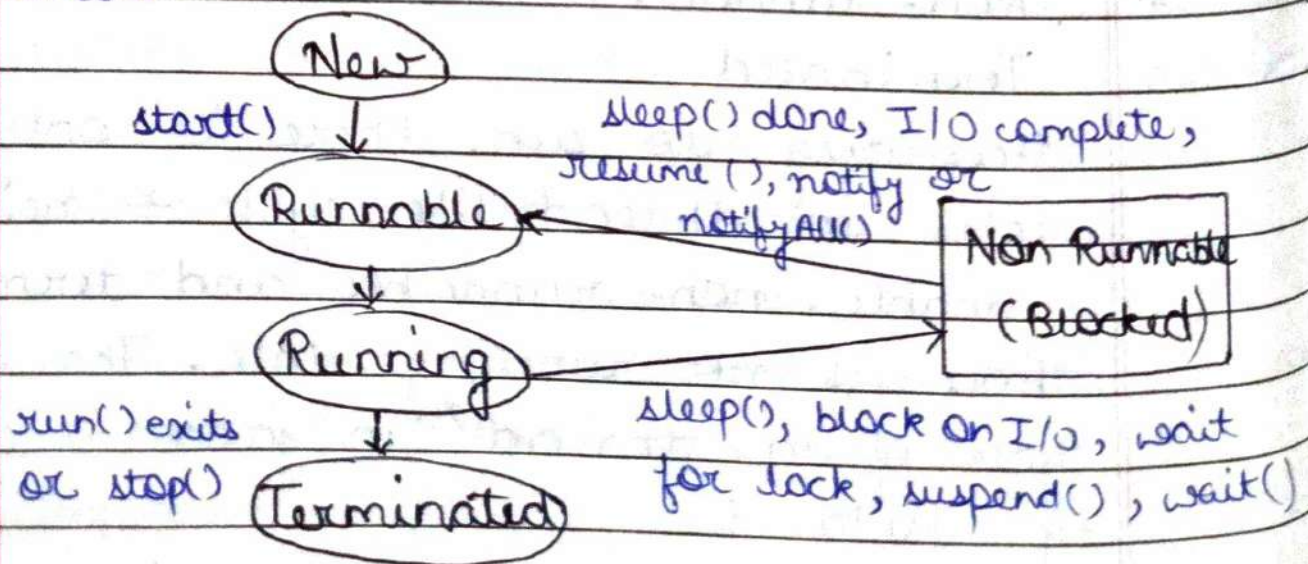 New
start()
sleep() done, I/O complete,
resume (), notify or
notifyAll()
Runnable
Non Runnable
(Blocked)
Running
run() exits
or stop()
sleep(), block on I/O, wait
for lock, suspend(), wait()
Terminated